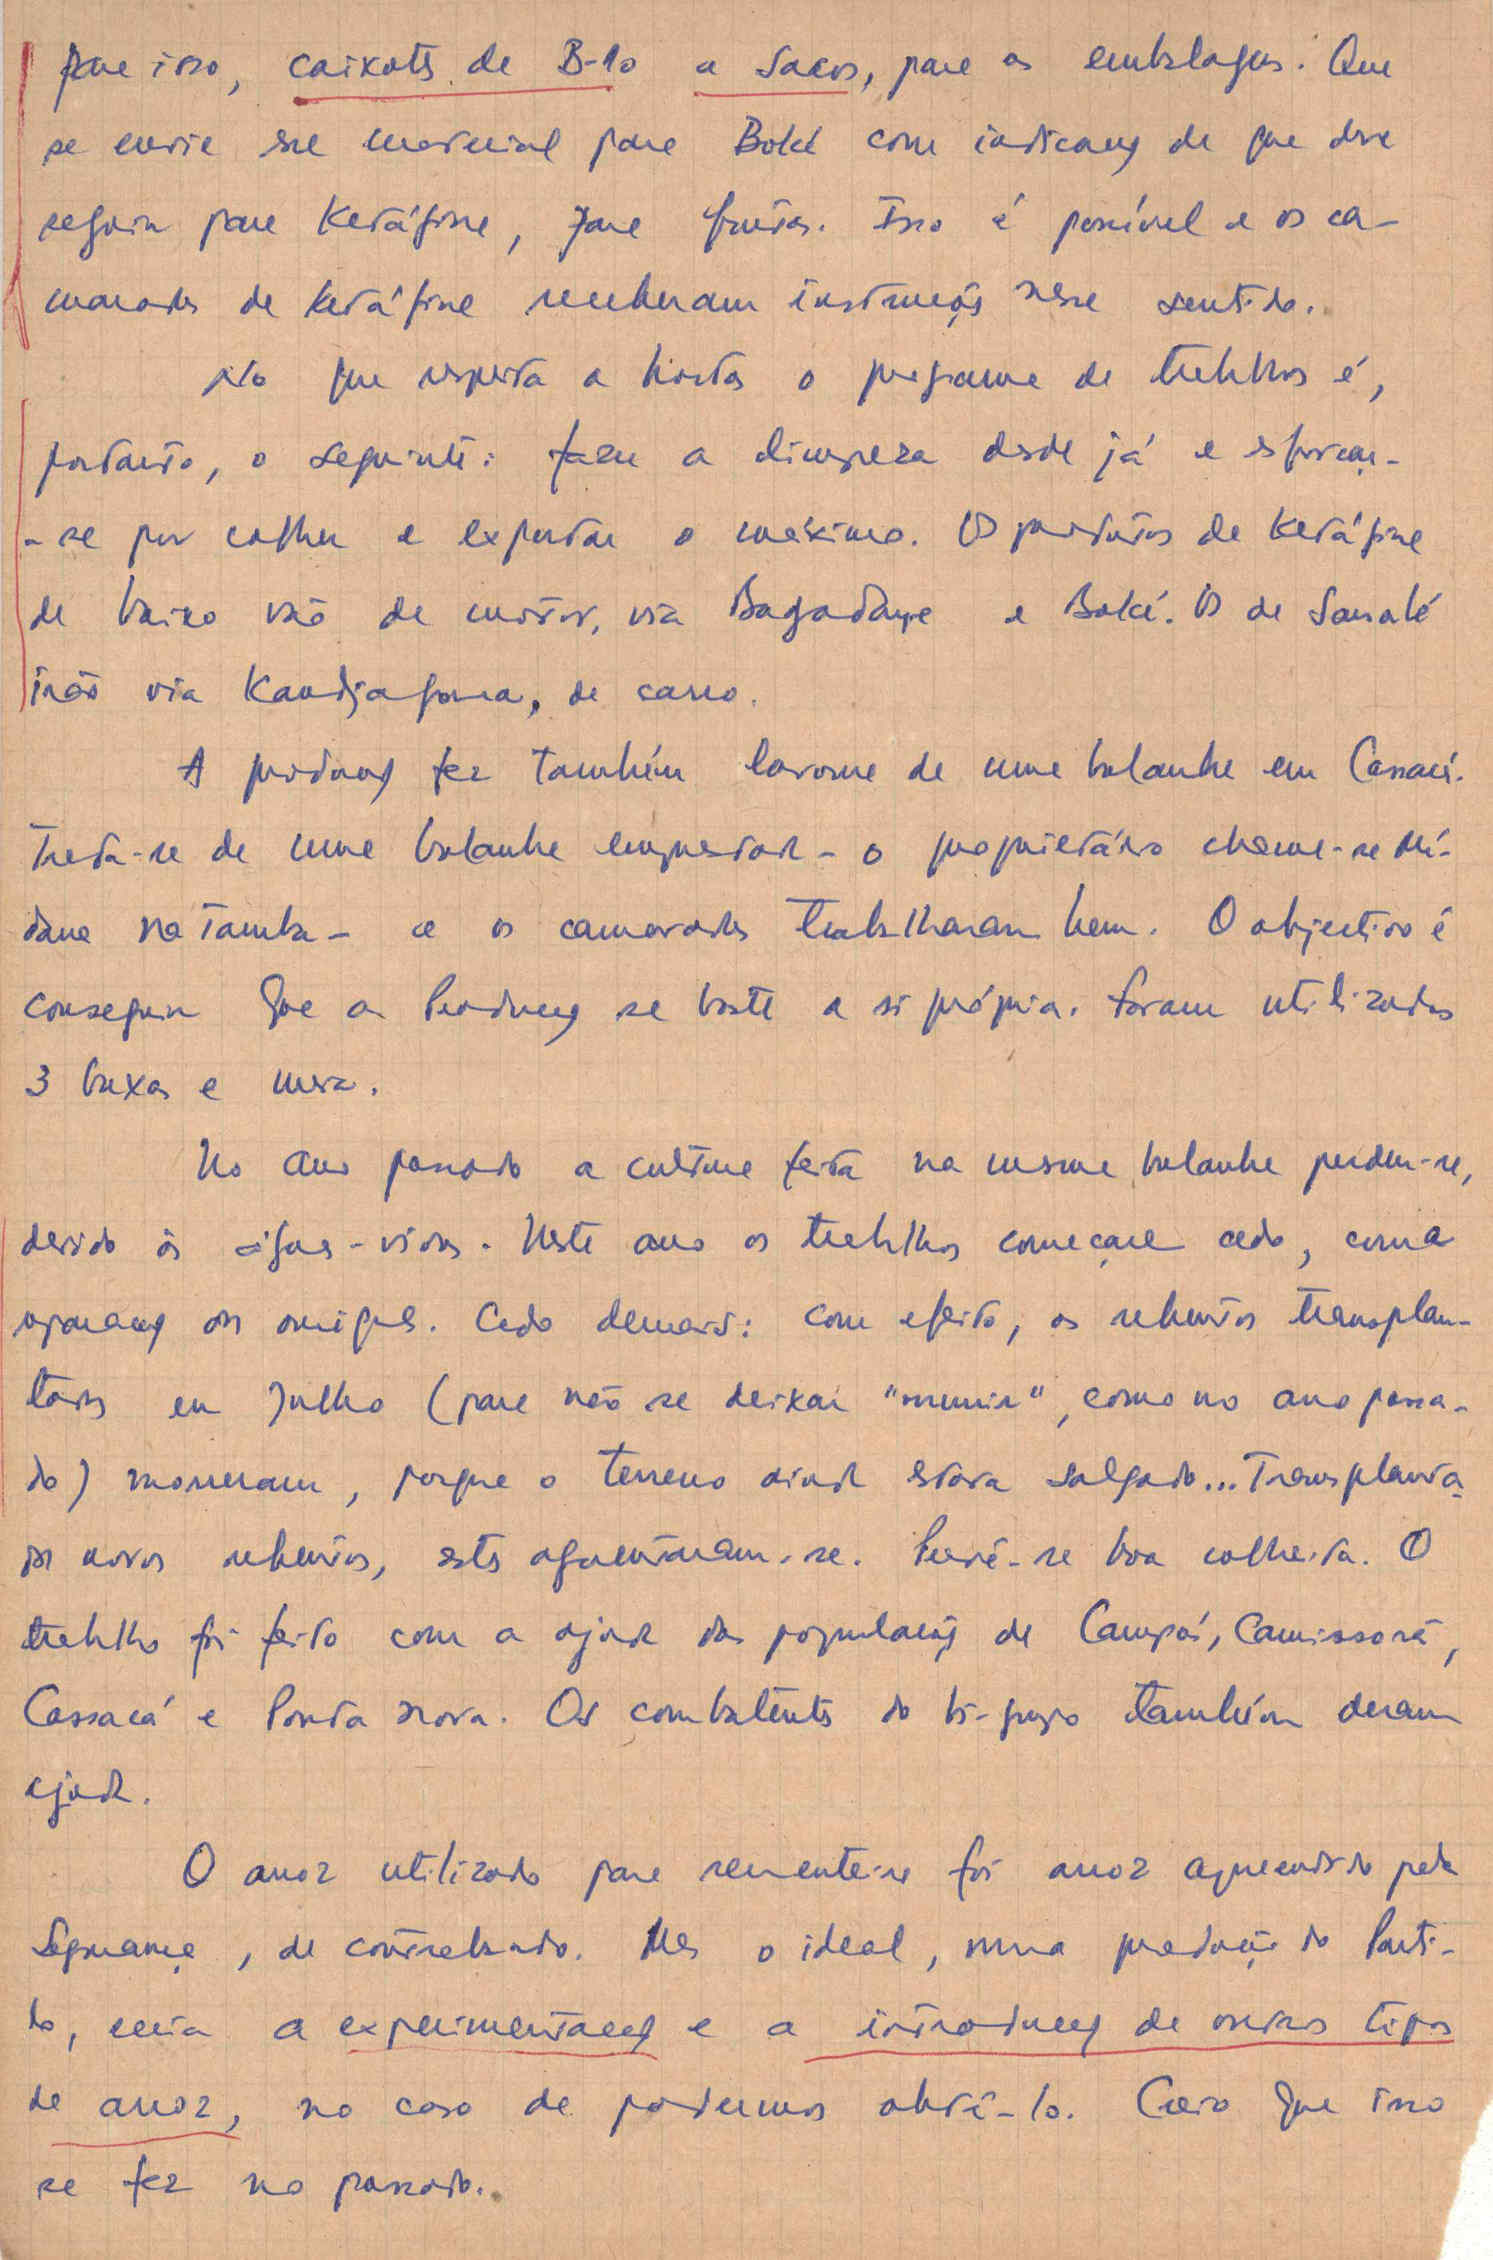 para isso, caixotes de B-10 e sacos, para as embalagens. Que
se envie esse material para Boké com indicação de que deve
seguir para Ketáfine, para frutas. Isso é possível e os ca-
maradas de Ketáfine receberam instruções nesse sentido.
No que respeita a hortas o programa de trabalhos é,
portanto, o seguinte: fazer a limpeza desde já e esforçar-
-se por colher e exportar o máximo. Os produtos de Ketáfine
de baixo vão de motor, via Bagadaye e Boké. Os de Sansalé
irão via Kandjafoura, de carro.
A produção fez também lavoura de uma bolanha em Cassacá.
Trata-se de uma bolanha emprestada - o proprietário chama-se Mi-
dana na Tamba - e os camaradas trabalharam bem. O objectivo é
conseguir que a Produção se baste a si própria. Foram utilizados
3 buxas e meia.
No ano passado a cultura feita na mesma bolanha perdeu-se,
devido às águas-vivas. Neste ano os trabalhos começaram cedo, com a
reparação dos ouriques. Cedo demais: com efeito, os rebentos transplan-
tados em Julho (para não se deixar "murrir", como no ano passa-
do) morreram, porque o terreno ainda estava salgado... Transplanta-
dos novos rebentos, estes aguentaram-se. Prevê-se boa colheita. O
trabalho foi feito com a ajuda das populações de Campá, Camissorã,
Cassacá e Ponta Nova. Os combatentes do bi-grupo também deram
ajuda.
O arroz utilizado para sementeira foi arroz apreendido pela
Segurança, de contrabando. Mas o ideal, numa produção do Parti-
do, seria a experimentação e a introdução de outros tipos
de arroz, no caso de podermos obtê-lo. Creio que isso
se fez no passado.